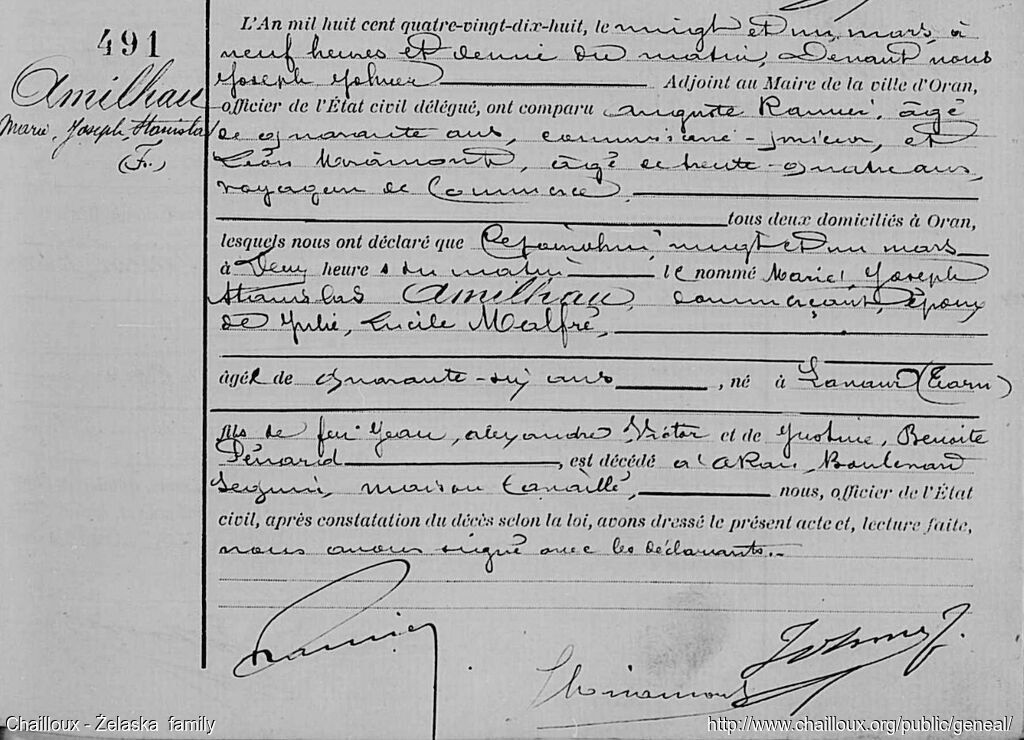 491
Amilhau
Marie, Joseph Stanislas
(Fr.)
L'An mil huit cent quatre-vingt-dix-huit, le vingt et un mars, à
neuf heures et demie du matin, Devant nous
Joseph Adjoint au Maire de la ville d'Oran,
officier de l'État civil délégué, ont comparu Auguste Ramier, âgé
de quarante ans, commissaire-priseur, et
Léon , âgé de trente-quatre ans,
voyageur de Commerce,
tous deux domiciliés à Oran,
lesquels nous ont déclaré que Cejourd'hui, vingt et un mars
à Deux heures du matin le nommé Marie, Joseph
Stanislas Amilhau, commerçant, époux
de Julie, Lucile Malfré,
âgé de quarante-six ans, né à (Tarn)
fils de feu Jean, Alexandre Victor et de Justine, Benoite
Pénarid, est décédé à Oran, Boulevard
Seguin, maison Canaille, nous, officier de l'État
civil, après constatation du décès selon la loi, avons dressé le présent acte et, lecture faite,
nous avons signé avec les déclarants.-
Ramier
Chailloux - Želaska family
http://www.chailloux.org/public/geneal/